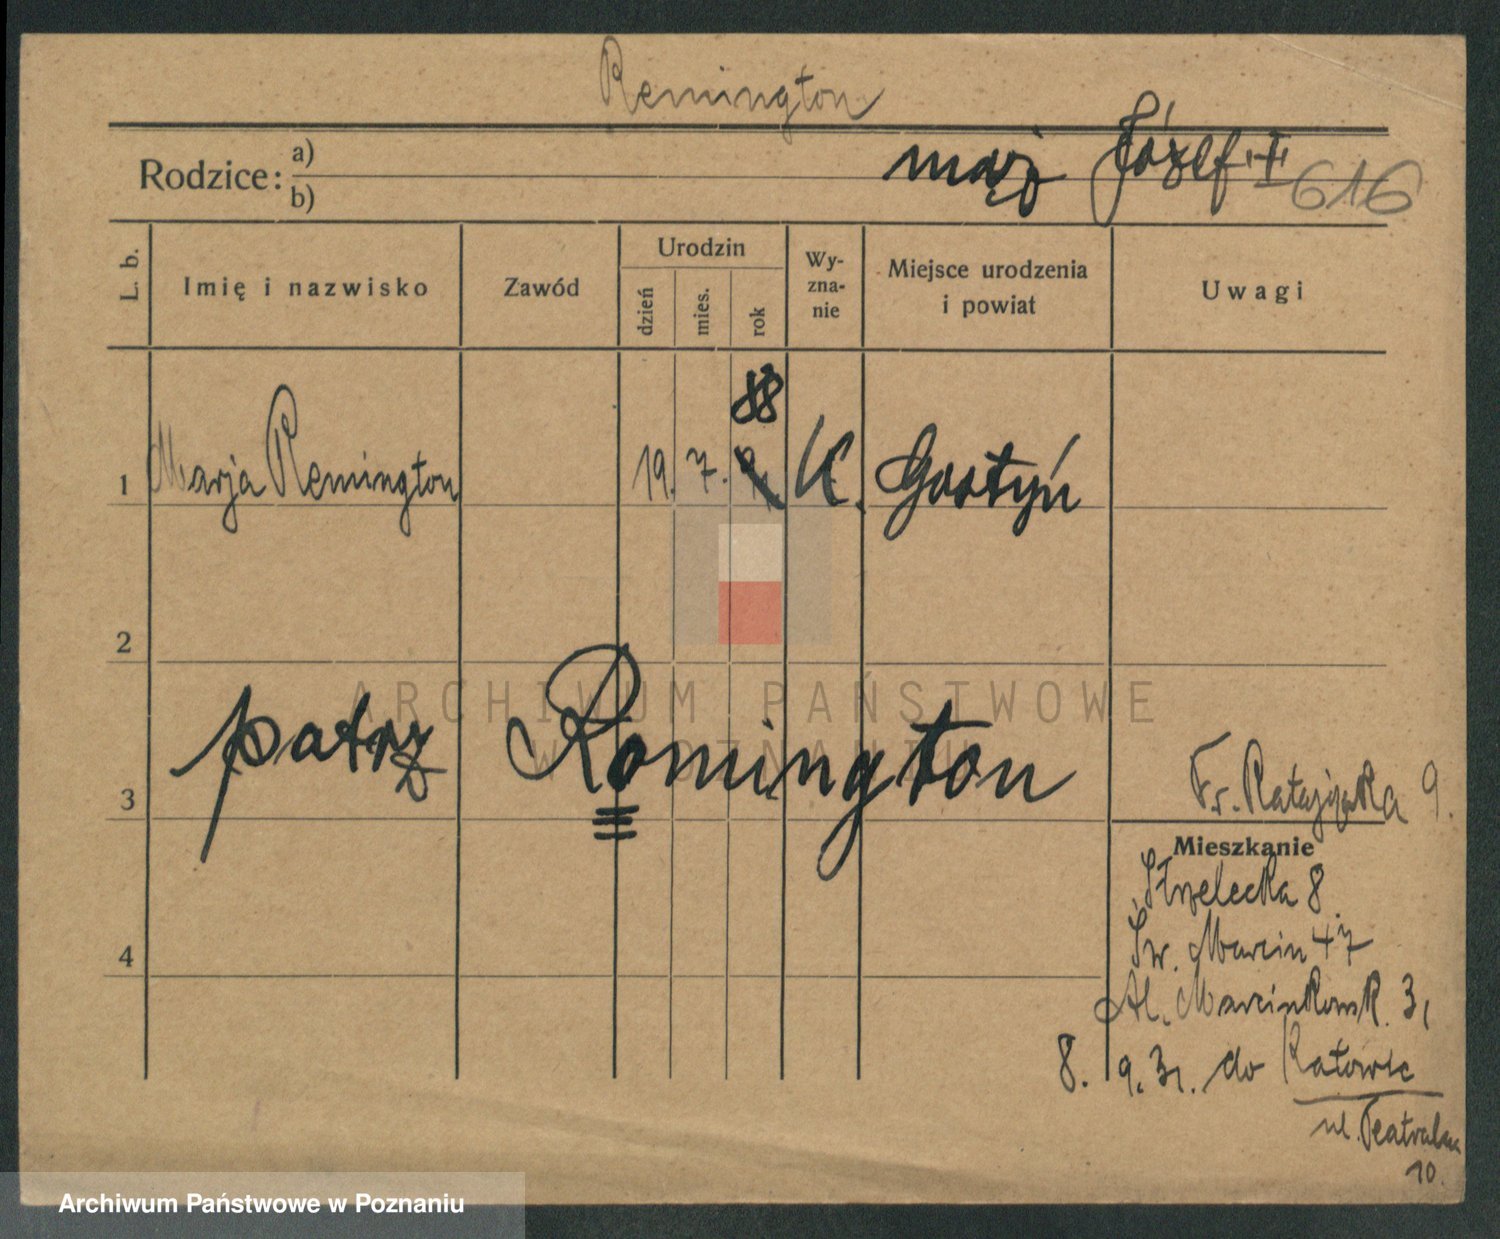 Remington
Rodzice: a) mąż Józef I 616
b)
L. b. Imię i nazwisko Zawód Urodzin dzień mies. rok Wy-zna-nie Miejsce urodzenia i powiat Uwagi
88
1 Marja Remington 19. 7. K. Gostyń
2
ARCHIWUM PAŃSTWOWE
W POZNANIU
patrz Romington
3 Fr. Ratajczaka 9.
Mieszkanie
Strzelecka 8.
Św. Marcin 47
4
Al. Marcinkowsk. 3,
8. 9. 31. do Katowic
ul. Teatralna
10.
Archiwum Państwowe w Poznaniu